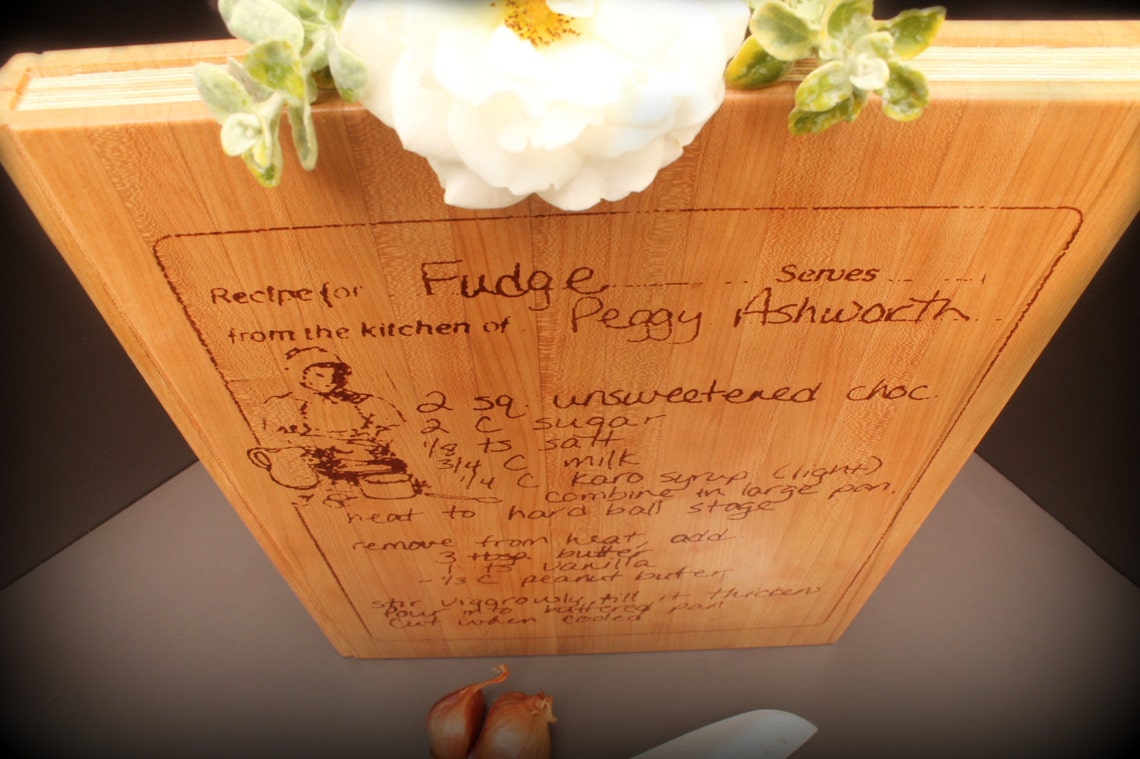 Recipe for Fudge Serves
from the kitchen of Peggy Ashworth
2 sq. unsweetened choc.
2 C sugar
1/8 ts salt
3/4 C milk
1/4 C Karo syrup (light)
combine in large pan,
heat to hard ball stage
remove from heat, add
3 tbsp butter
1 ts vanilla
~1/3 C peanut butter,
stir viggrowly till it thickens
Pour into buttered pan
Cut when cooled